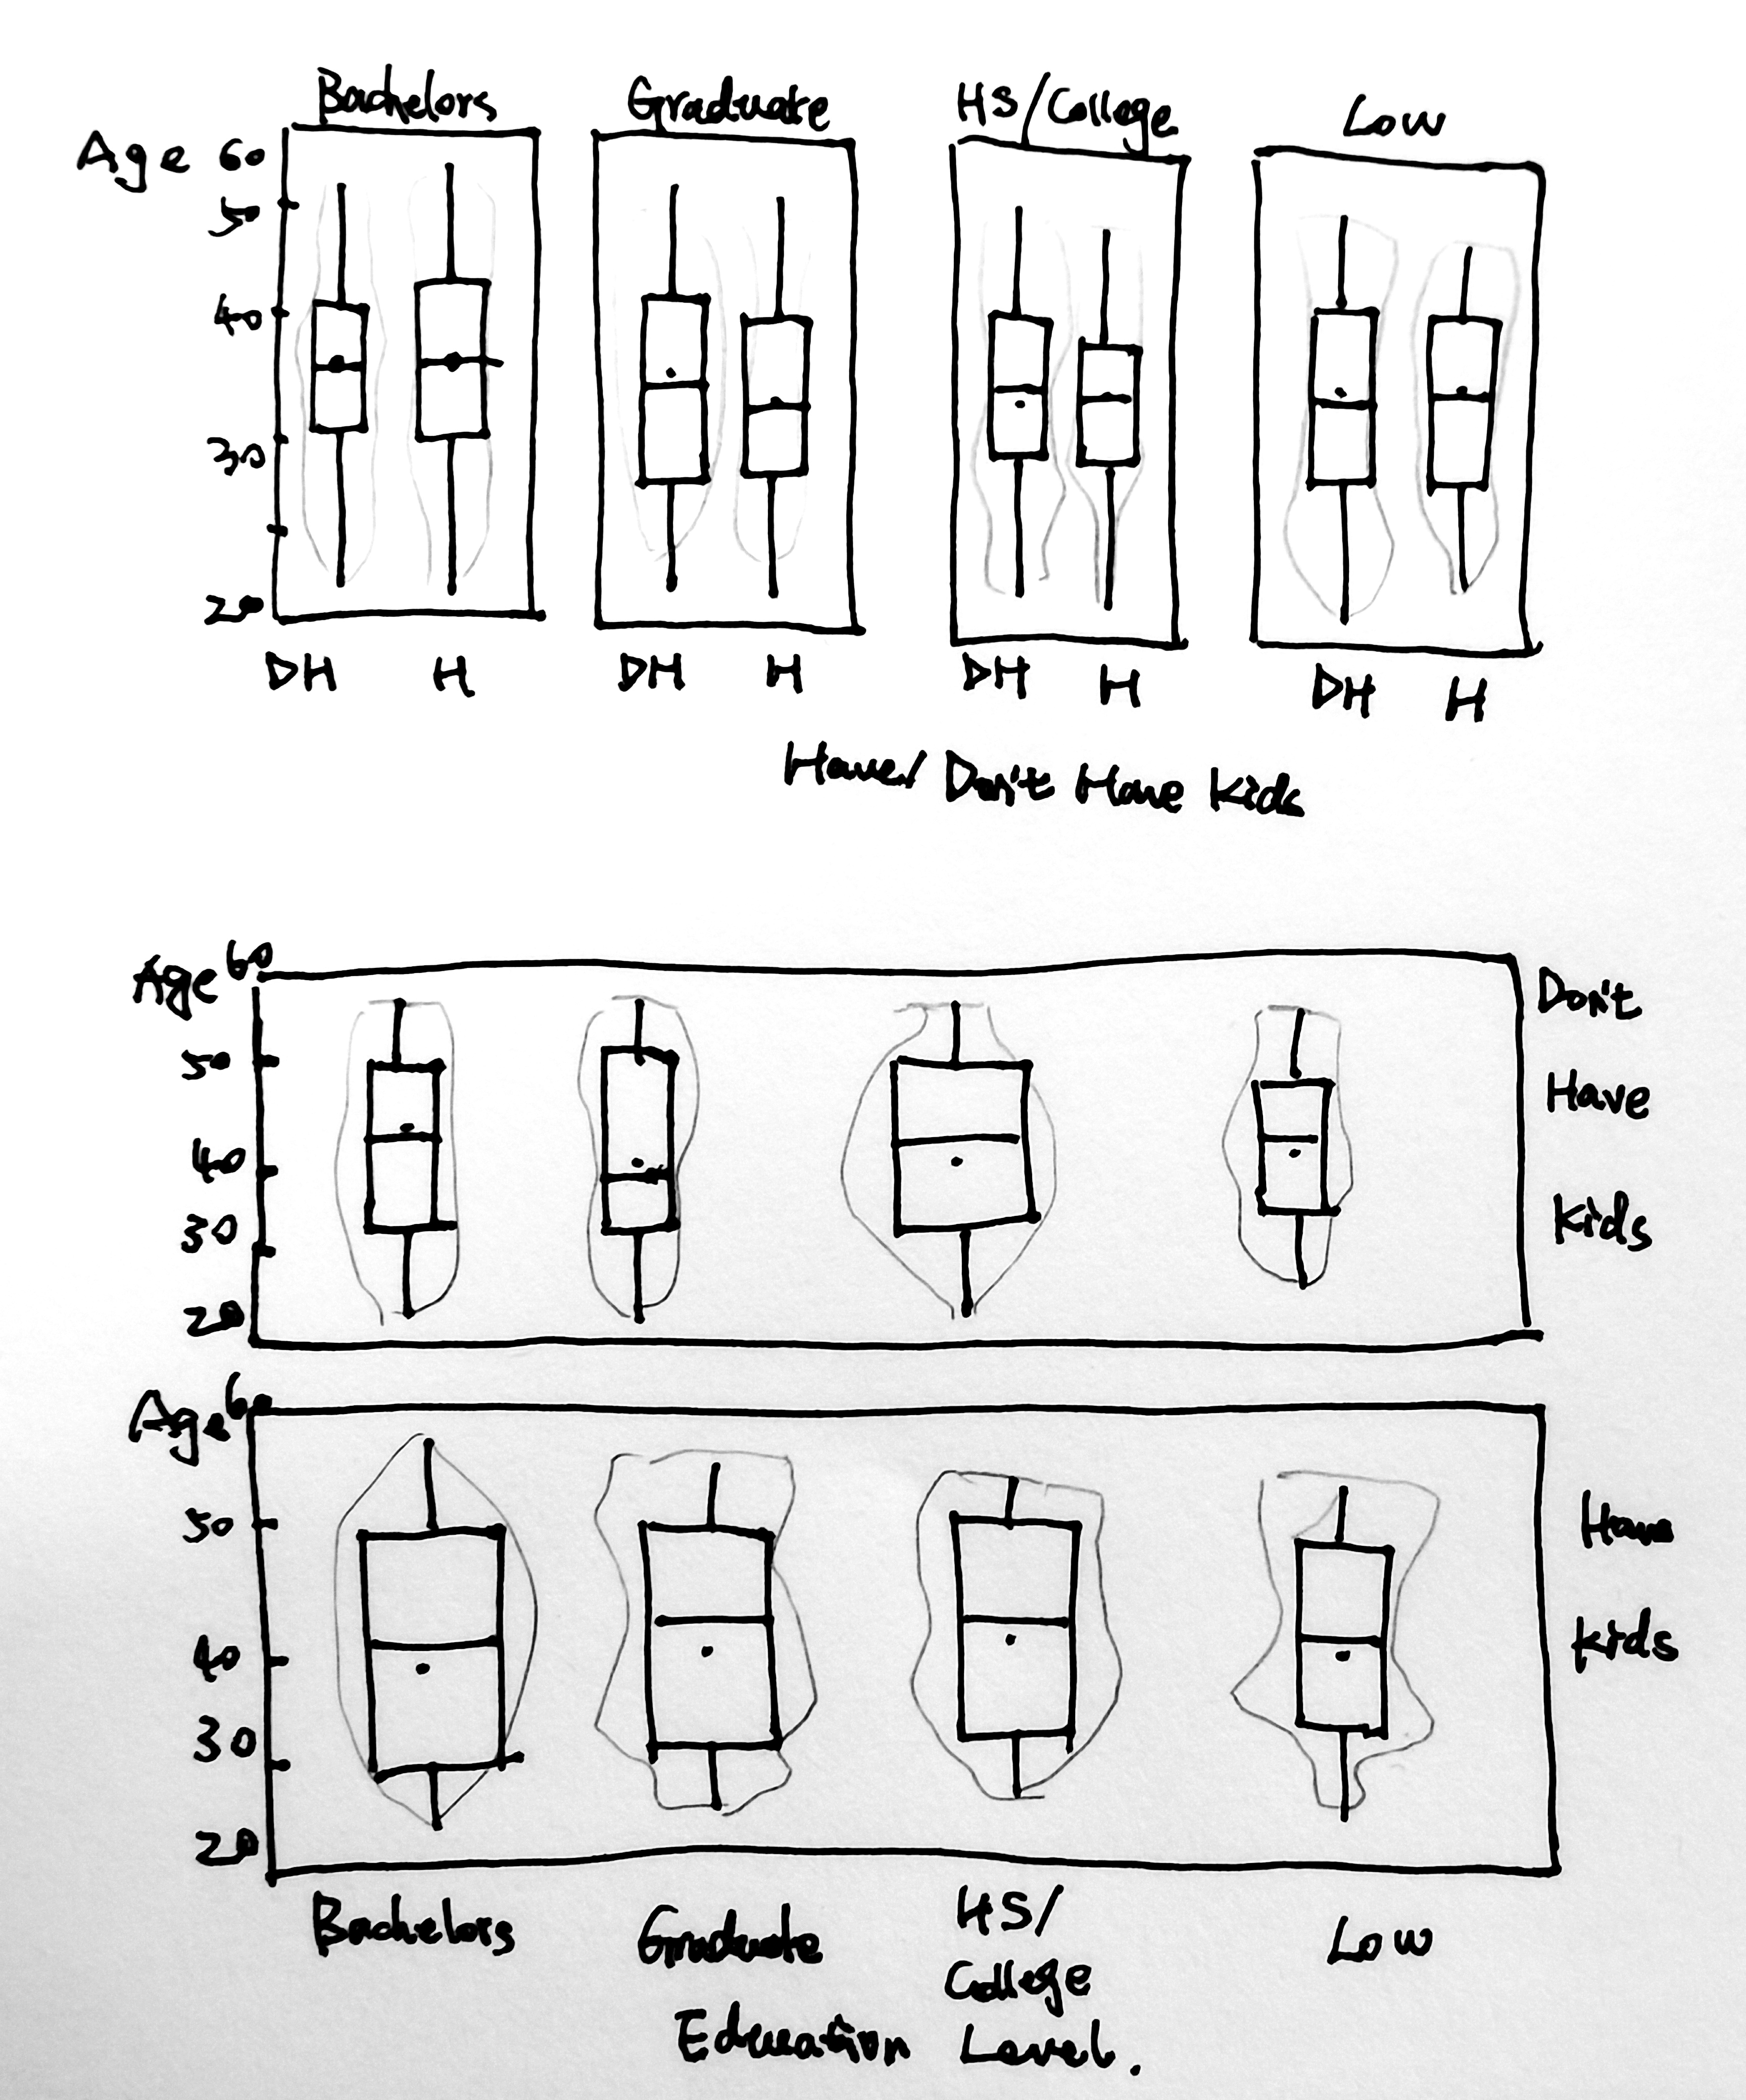 Bachelors Graduate HS/College Low
Age 60
50
40
30
20
DH H DH H DH H DH H
Have/ Don't Have Kids
Age 60
50
40
30
20
Don't
Have
Kids
Age 60
50
40
30
20
Have
Kids
Bachelors Graduate HS/ Low
College
Education Level.